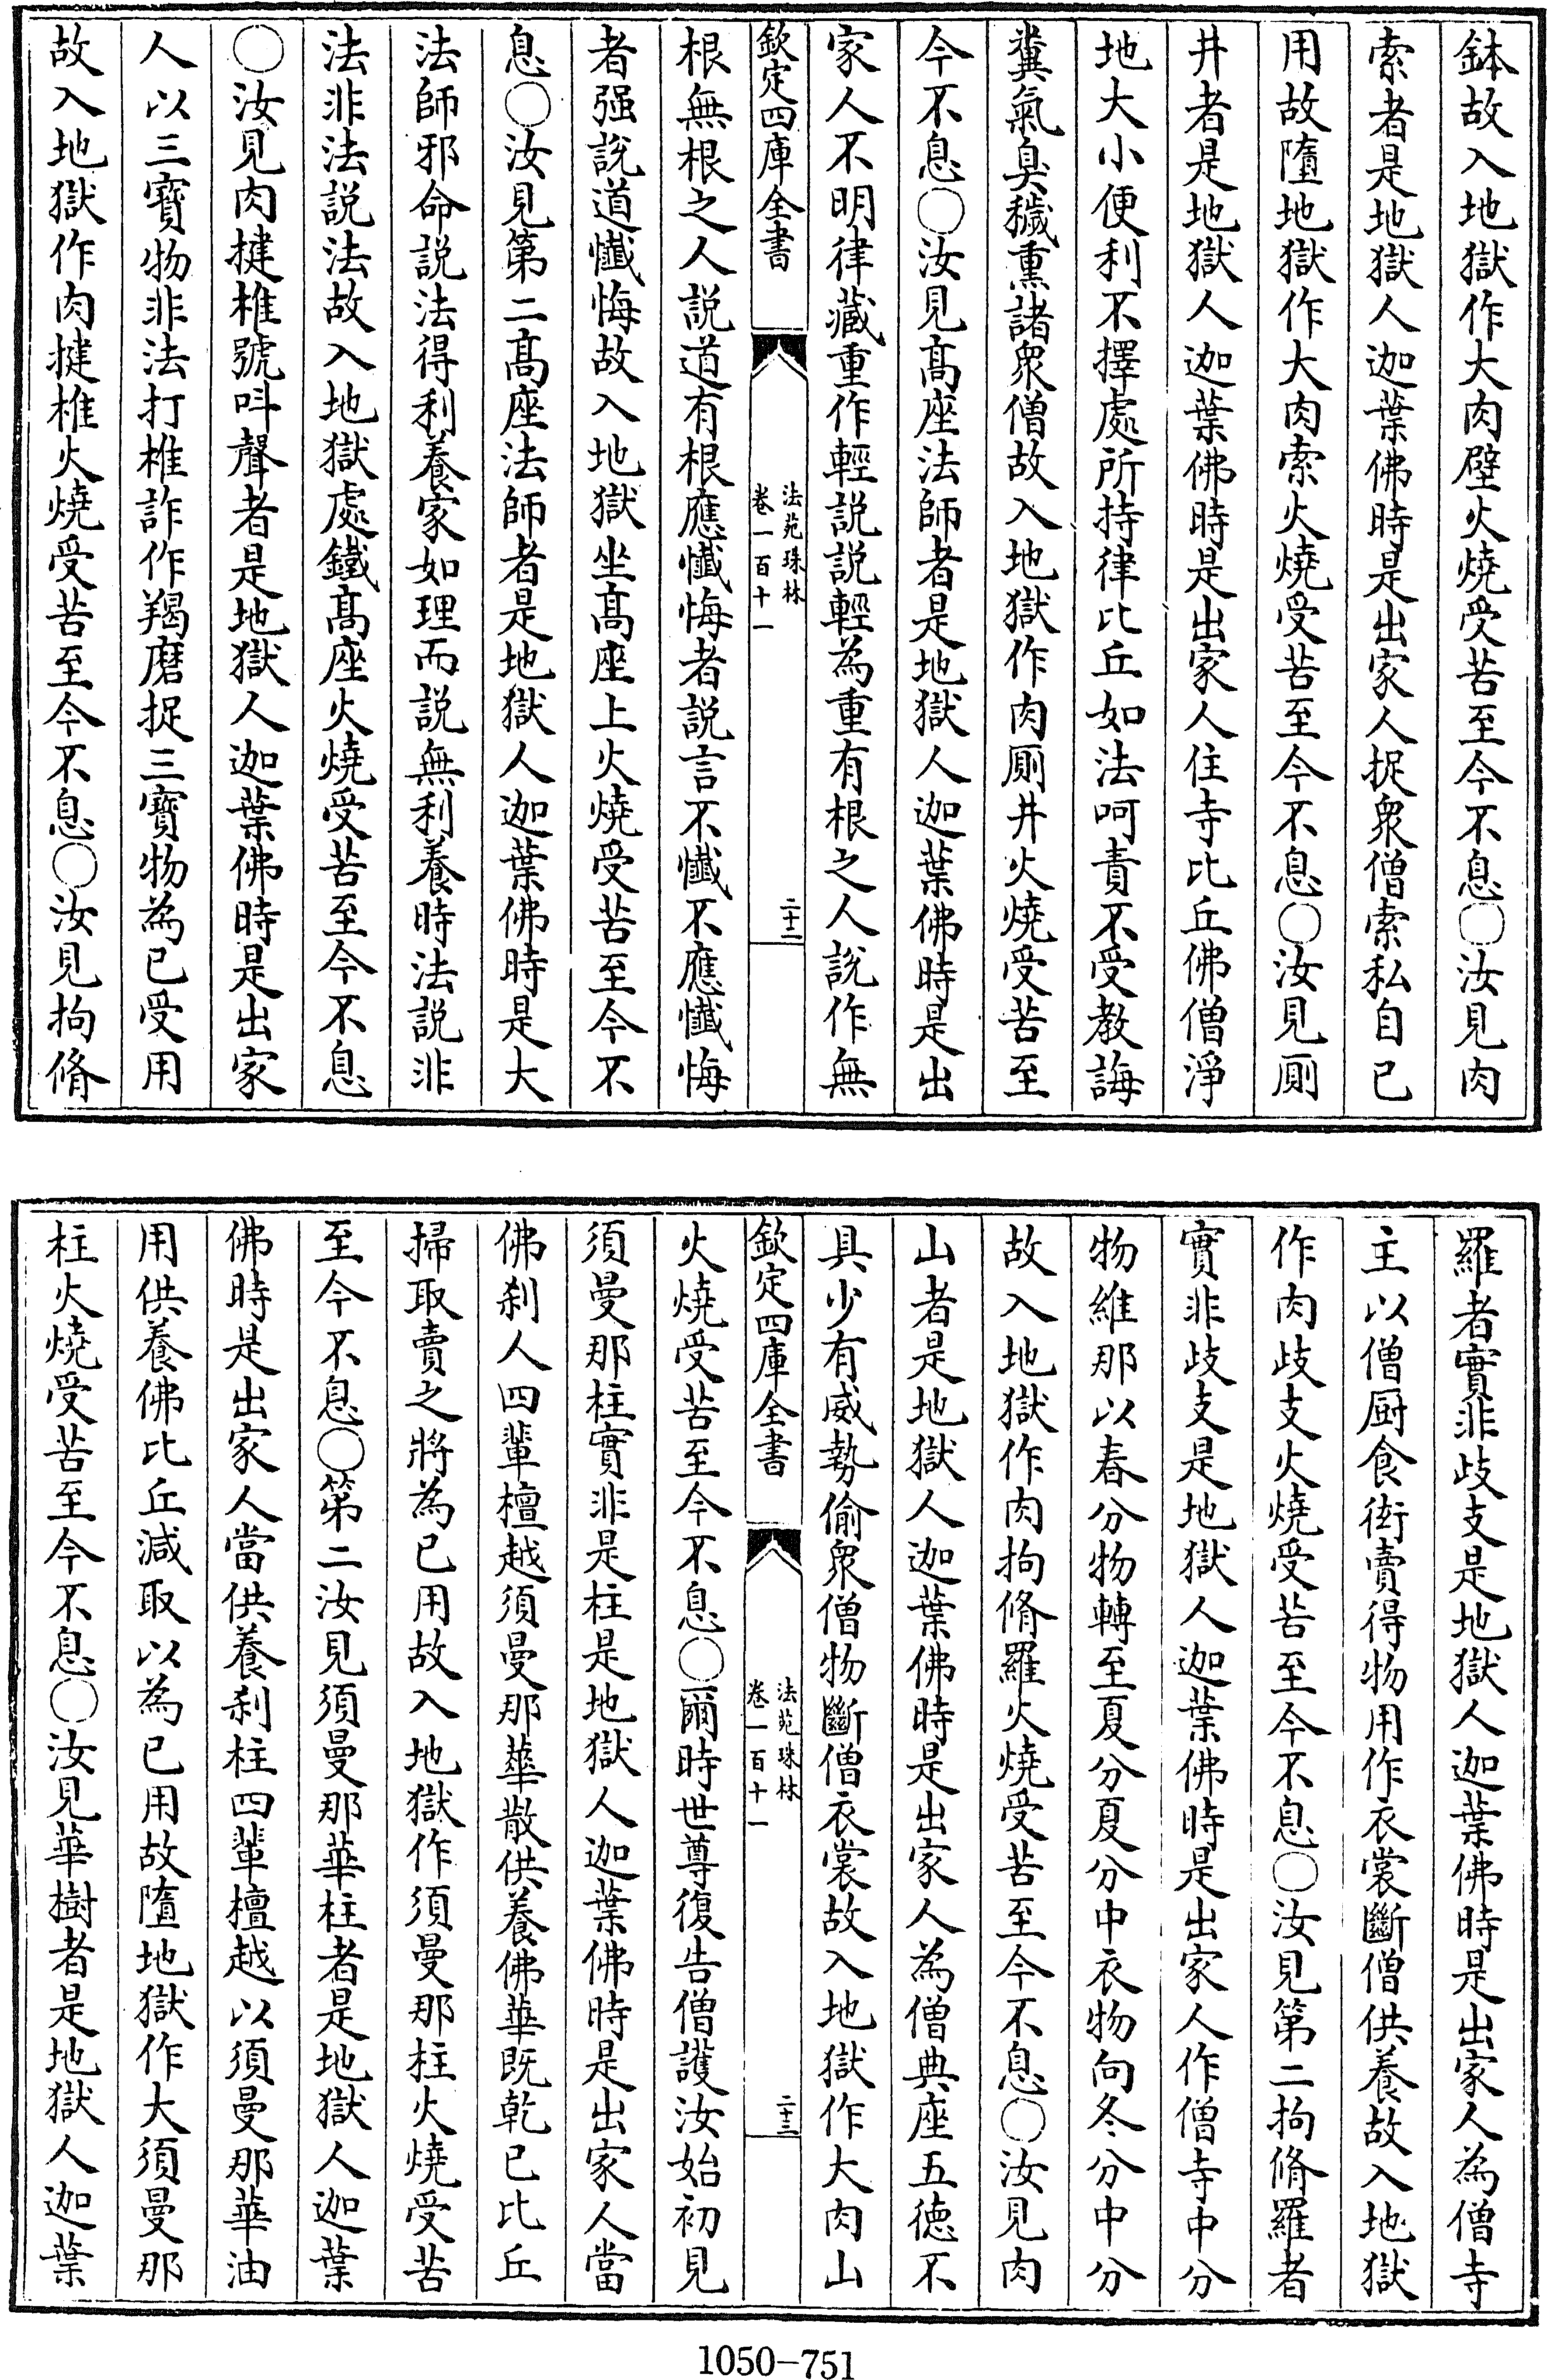 鉢故入地獄作大肉壁火燒受苦至今不息○汝見肉
索者是地獄人迦葉佛時是出家人捉衆僧索私自已
用故墮地獄作大肉索火燒受苦至今不息○汝見厠
井者是地獄人迦葉佛時是出家人住寺比丘佛僧淨
地大小便利不擇處所持律比丘如法呵責不受教誨
糞氣臭穢熏諸衆僧故入地獄作肉厠井火燒受苦至
今不息○汝見髙座法師者是地獄人迦葉佛時是出
家人不明律藏重作輕説説輕為重有根之人說作無
欽定四庫全書
法苑珠林
卷一百十一
二十二
根無根之人説道有根應懺悔者説言不懺不應懺悔
者强説道懺悔故入地獄坐髙座上火燒受苦至今不
息○汝見第二髙座法師者是地獄人迦葉佛時是大
法師邪命説法得利養家如理而説無利養時法説非
法非法説法故入地獄處鐵髙座火燒受苦至今不息
○汝見肉揵椎號呌聲者是地獄人迦葉佛時是出家
人以三寳物非法打椎詐作羯磨捉三寳物為已受用
故入地獄作肉揵椎火燒受苦至今不息○汝見拘脩
羅者實非歧支是地獄人迦葉佛時是出家人為僧寺
主以僧厨食衒賣得物用作衣裳斷僧供養故入地獄
作肉歧支火燒受苦至今不息○汝見第二拘脩羅者
實非歧支是地獄人迦葉佛時是出家人作僧寺中分
物維那以春分物轉至夏分夏分中衣物向冬分中分
故入地獄作肉拘脩羅火燒受苦至今不息○汝見肉
山者是地獄人迦葉佛時是出家人為僧典座五徳不
具少有威勢偷衆僧物斷僧衣裳故入地獄作大肉山
欽定四庫全書
法苑珠林
卷一百十一
二十三
火燒受苦至今不息○爾時世尊復告僧護汝始初見
須曼那柱實非是柱是地獄人迦葉佛時是出家人當
佛刹人四輩檀越須曼那華散供養佛華既乾已比丘
掃取賣之將為已用故入地獄作須曼那柱火燒受苦
至今不息○第二汝見須曼那華柱者是地獄人迦葉
佛時是出家人當供養刹柱四輩檀越以須曼那華油
用供養佛比丘減取以為已用故墮地獄作大須曼那
柱火燒受苦至今不息○汝見華樹者是地獄人迦葉
1050-751